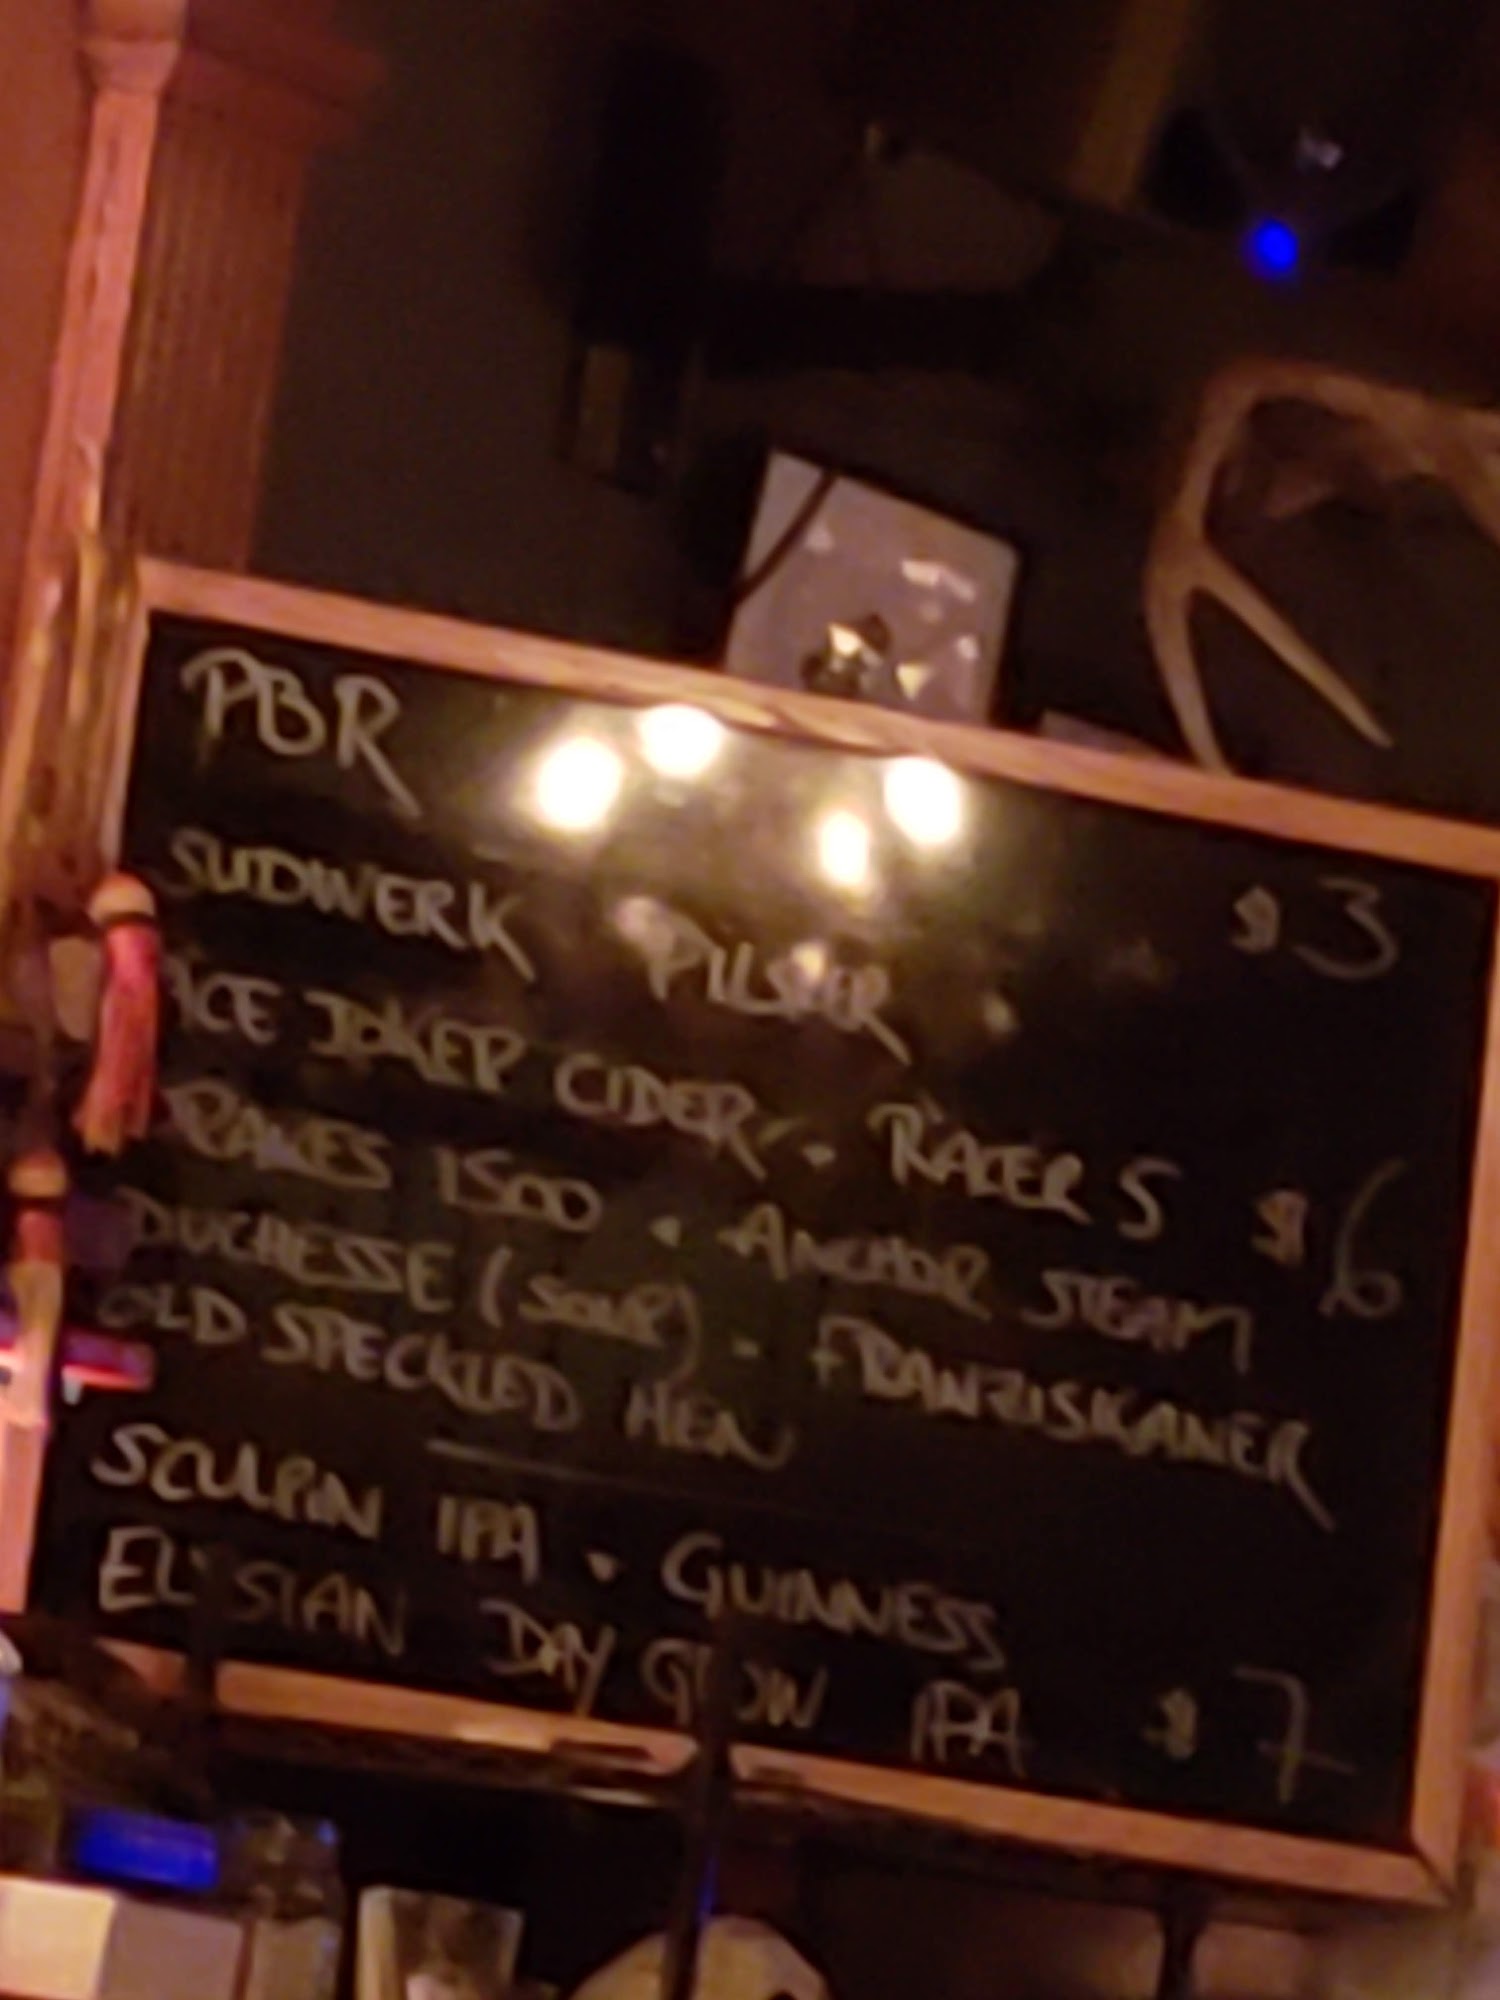 PBR $3
SUDWERK PILSNER
ACE JOKER CIDER · RACER 5 $6
RAKES 1500 · ANCHOR STEAM
DUCHESSE (SOUR) - FRANZISKANER
OLD SPECKLED HEN
SCULPIN IPA · GUINNESS
ELYSIAN DAY GLOW IPA $7